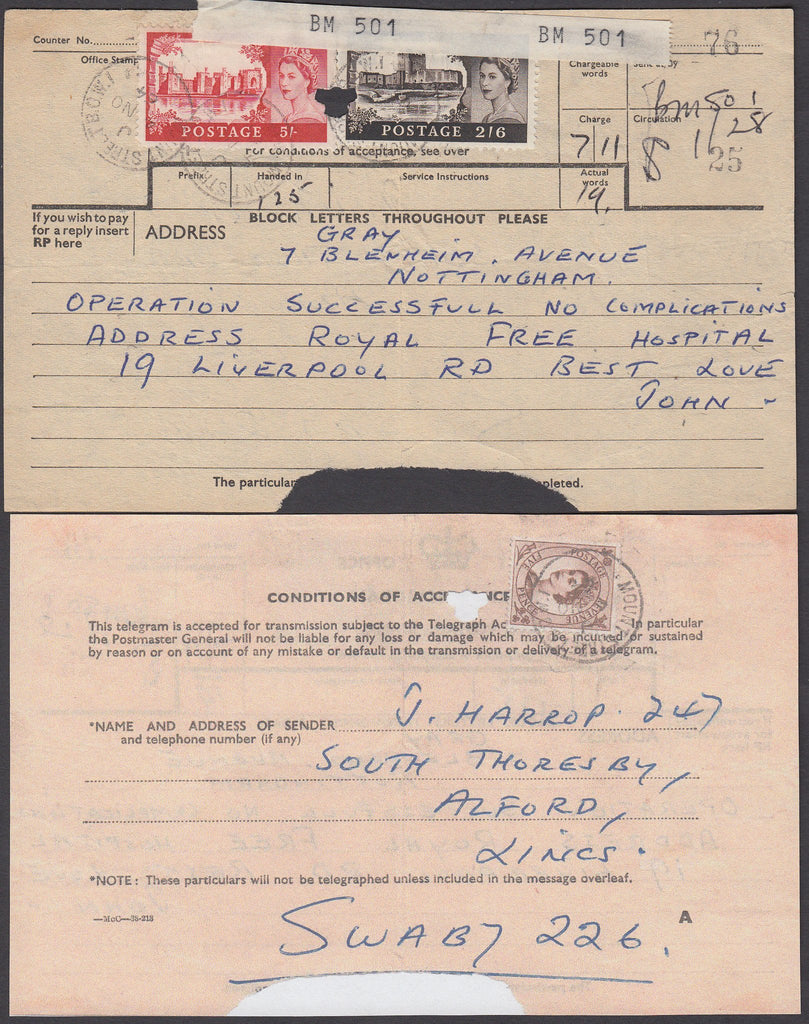 BM 501
BM 501
Counter No.
76
Office Stamp
Chargeable words
Sent at/By
POSTAGE 5/-
POSTAGE 2/6
Charge
Circulation
BM 501
7/11
1/28
8
25
For conditions of acceptance, see over
Prefix
Handed in
Service Instructions
Actual words
125
19.
If you wish to pay
for a reply insert
RP here
BLOCK LETTERS THROUGHOUT PLEASE
ADDRESS
GRAY
7 BLENHEIM. AVENUE
NOTTINGHAM.
OPERATION SUCCESSFULL NO COMPLICATIONS
ADDRESS ROYAL FREE HOSPITAL
19 LIVERPOOL RD BEST LOVE
JOHN -
The particular
pleted.
POSTAGE
REVENUE
FIVE PENCE
CONDITIONS OF ACC NCE
This telegram is accepted for transmission subject to the Telegraph Ac In particular
the Postmaster General will not be liable for any loss or damage which may be incurred or sustained
by reason or on account of any mistake or default in the transmission or delivery of a telegram.
*NAME AND ADDRESS OF SENDER J. HARROP. 247
and telephone number (if any)
SOUTH THORESBY,
ALFORD,
LINCS.
*NOTE: These particulars will not be telegraphed unless included in the message overleaf.
—McC—35-213
A
SWABY 226.